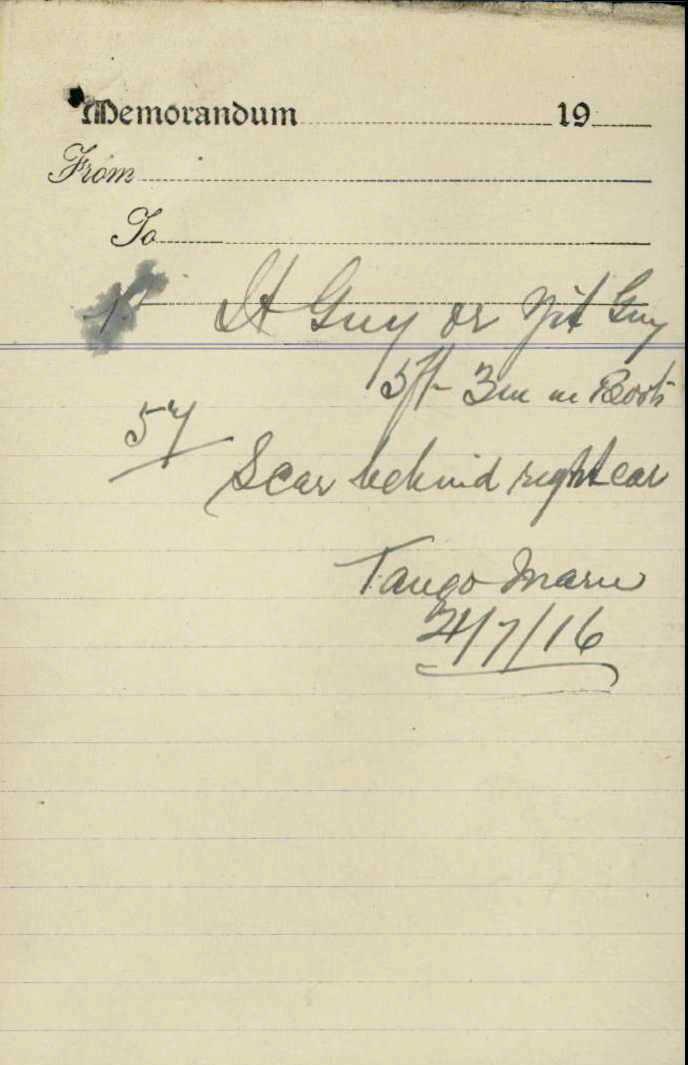 Memorandum 19
From
To
It Guy or Yit Guy
5ft- 3in in Boots
57
Scar behind right ear
Tango Maru
21/7/16